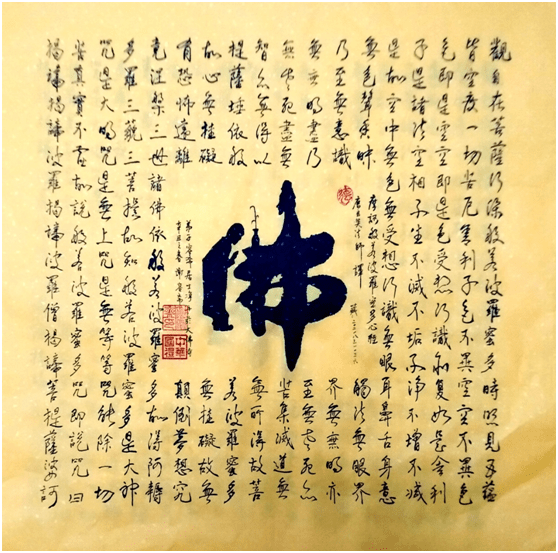 觀自在菩薩行深般若波羅蜜多時照見五蘊
皆空度一切苦厄舍利子色不異空空不異色
色即是空空即是色受想行識亦復如是舍利
子是諸法空相不生不滅不垢不淨不增不減
是故空中無色無受想行識無眼耳鼻舌身意
無色聲香味
觸法無眼界
乃至無意識
界無無明亦
無無明盡乃
至無老死亦
無老死盡無
苦集滅道無
智亦無得以
無所得故菩
提薩埵依般
若波羅蜜多
故心無挂礙
無挂礙故無
有恐怖遠離
顛倒夢想究
竟涅槃三世諸佛依般若波羅蜜多故得阿耨
多羅三藐三菩提故知般若波羅蜜多是大神
咒是大明咒是無上咒是無等等咒能除一切
苦真實不虛故說般若波羅蜜多咒即說咒曰
揭諦揭諦波羅揭諦波羅僧揭諦菩提薩婆訶
摩訶般若波羅蜜多心經
唐玄奘法師譯
佛